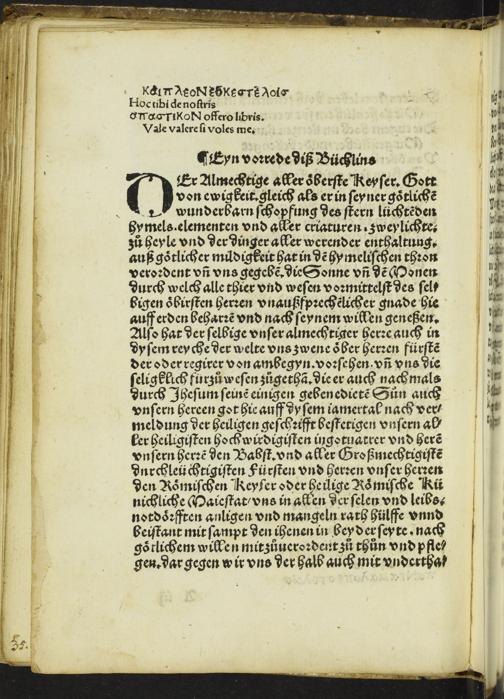 ΚΑΙ ΠΛΕΟΝ ΕΟΚΕΣΤΕΛΟΙΣ
Hoc tibi de nostris
σπαστικοΝ offero libris.
Vale valere si voles me.
¶Eyn vorrede diß Büchlins
DEr Almechtige aller öberste Keyser. Gott
von ewigkeit. gleich als er in seyner götlichē
wunderbarn schopfung des stern lüchtēden
hymels. elementen vnd aller criaturen. zwey lichte.
zů heyle vnd der dinger aller werender enthaltung.
auß götlicher mildigkeit hat in dē hymelischen thron
verordent vn̄ vns gegebē. die Sonne vn̄ dē Monen
durch welch alle thier vnd wesen vormittelst des sel⸗
bigen öbirsten herren vnaußsprechēlicher gnade hie
auff erden beharrē vnd nach seynem willen geneßen.
Also hat der selbige vnser almechtiger herre auch in
dysem reyche der welte vns zwene öber herren fürstē
der oder regirer von ambegyn. vorsehen. vn̄ vns die
seligklich fürzůwesen zůgethā. die er auch nachmals
durch Jhesum seinē einigen gebenedietē Sůn auch
vnsern herren got hie auff dysem iamertal nach ver⸗
meldung der heiligen geschrifft bestetigen vnsern al⸗
ler heiligisten hochwirdigisten in got vatrer vnd herē
vnsern herrē den Babst. vnd aller Großmechtigistē
durchleüchtigisten Fürsten vnd herren vnser herren
den Römischen Keyser oder heilige Römische Kü
nichliche Maiestat/ vns in allen der selen vnd leibs⸗
notdörfften anligen vnd mangeln rath hülffe vnnd
beistant mit sampt den ihenen in beyder seyte. nach
götlichem willen mit zůuerordent zů thůn vnd pfle⸗
gen. dar gegen wir vns der halb auch mit vnderthā
35.